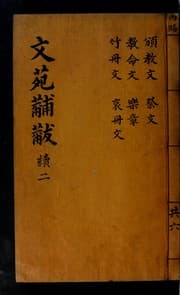 內賜
共六
頒教文 祭文
教命文 樂章
竹冊文 哀冊文
文苑黼黻 續二